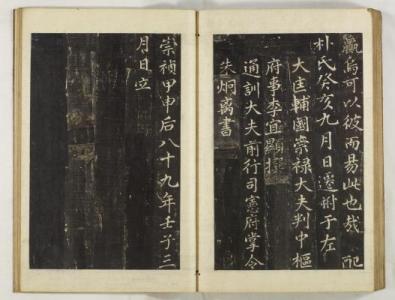 羸焉可以彼而易此也哉 配
朴氏癸亥九月日遷祔于左
大匡輔國崇祿大夫判中樞
府事李宜顯撰
通訓大夫前行司憲府掌令
炯離書
崇禎甲申后八十九年壬子三
月日立